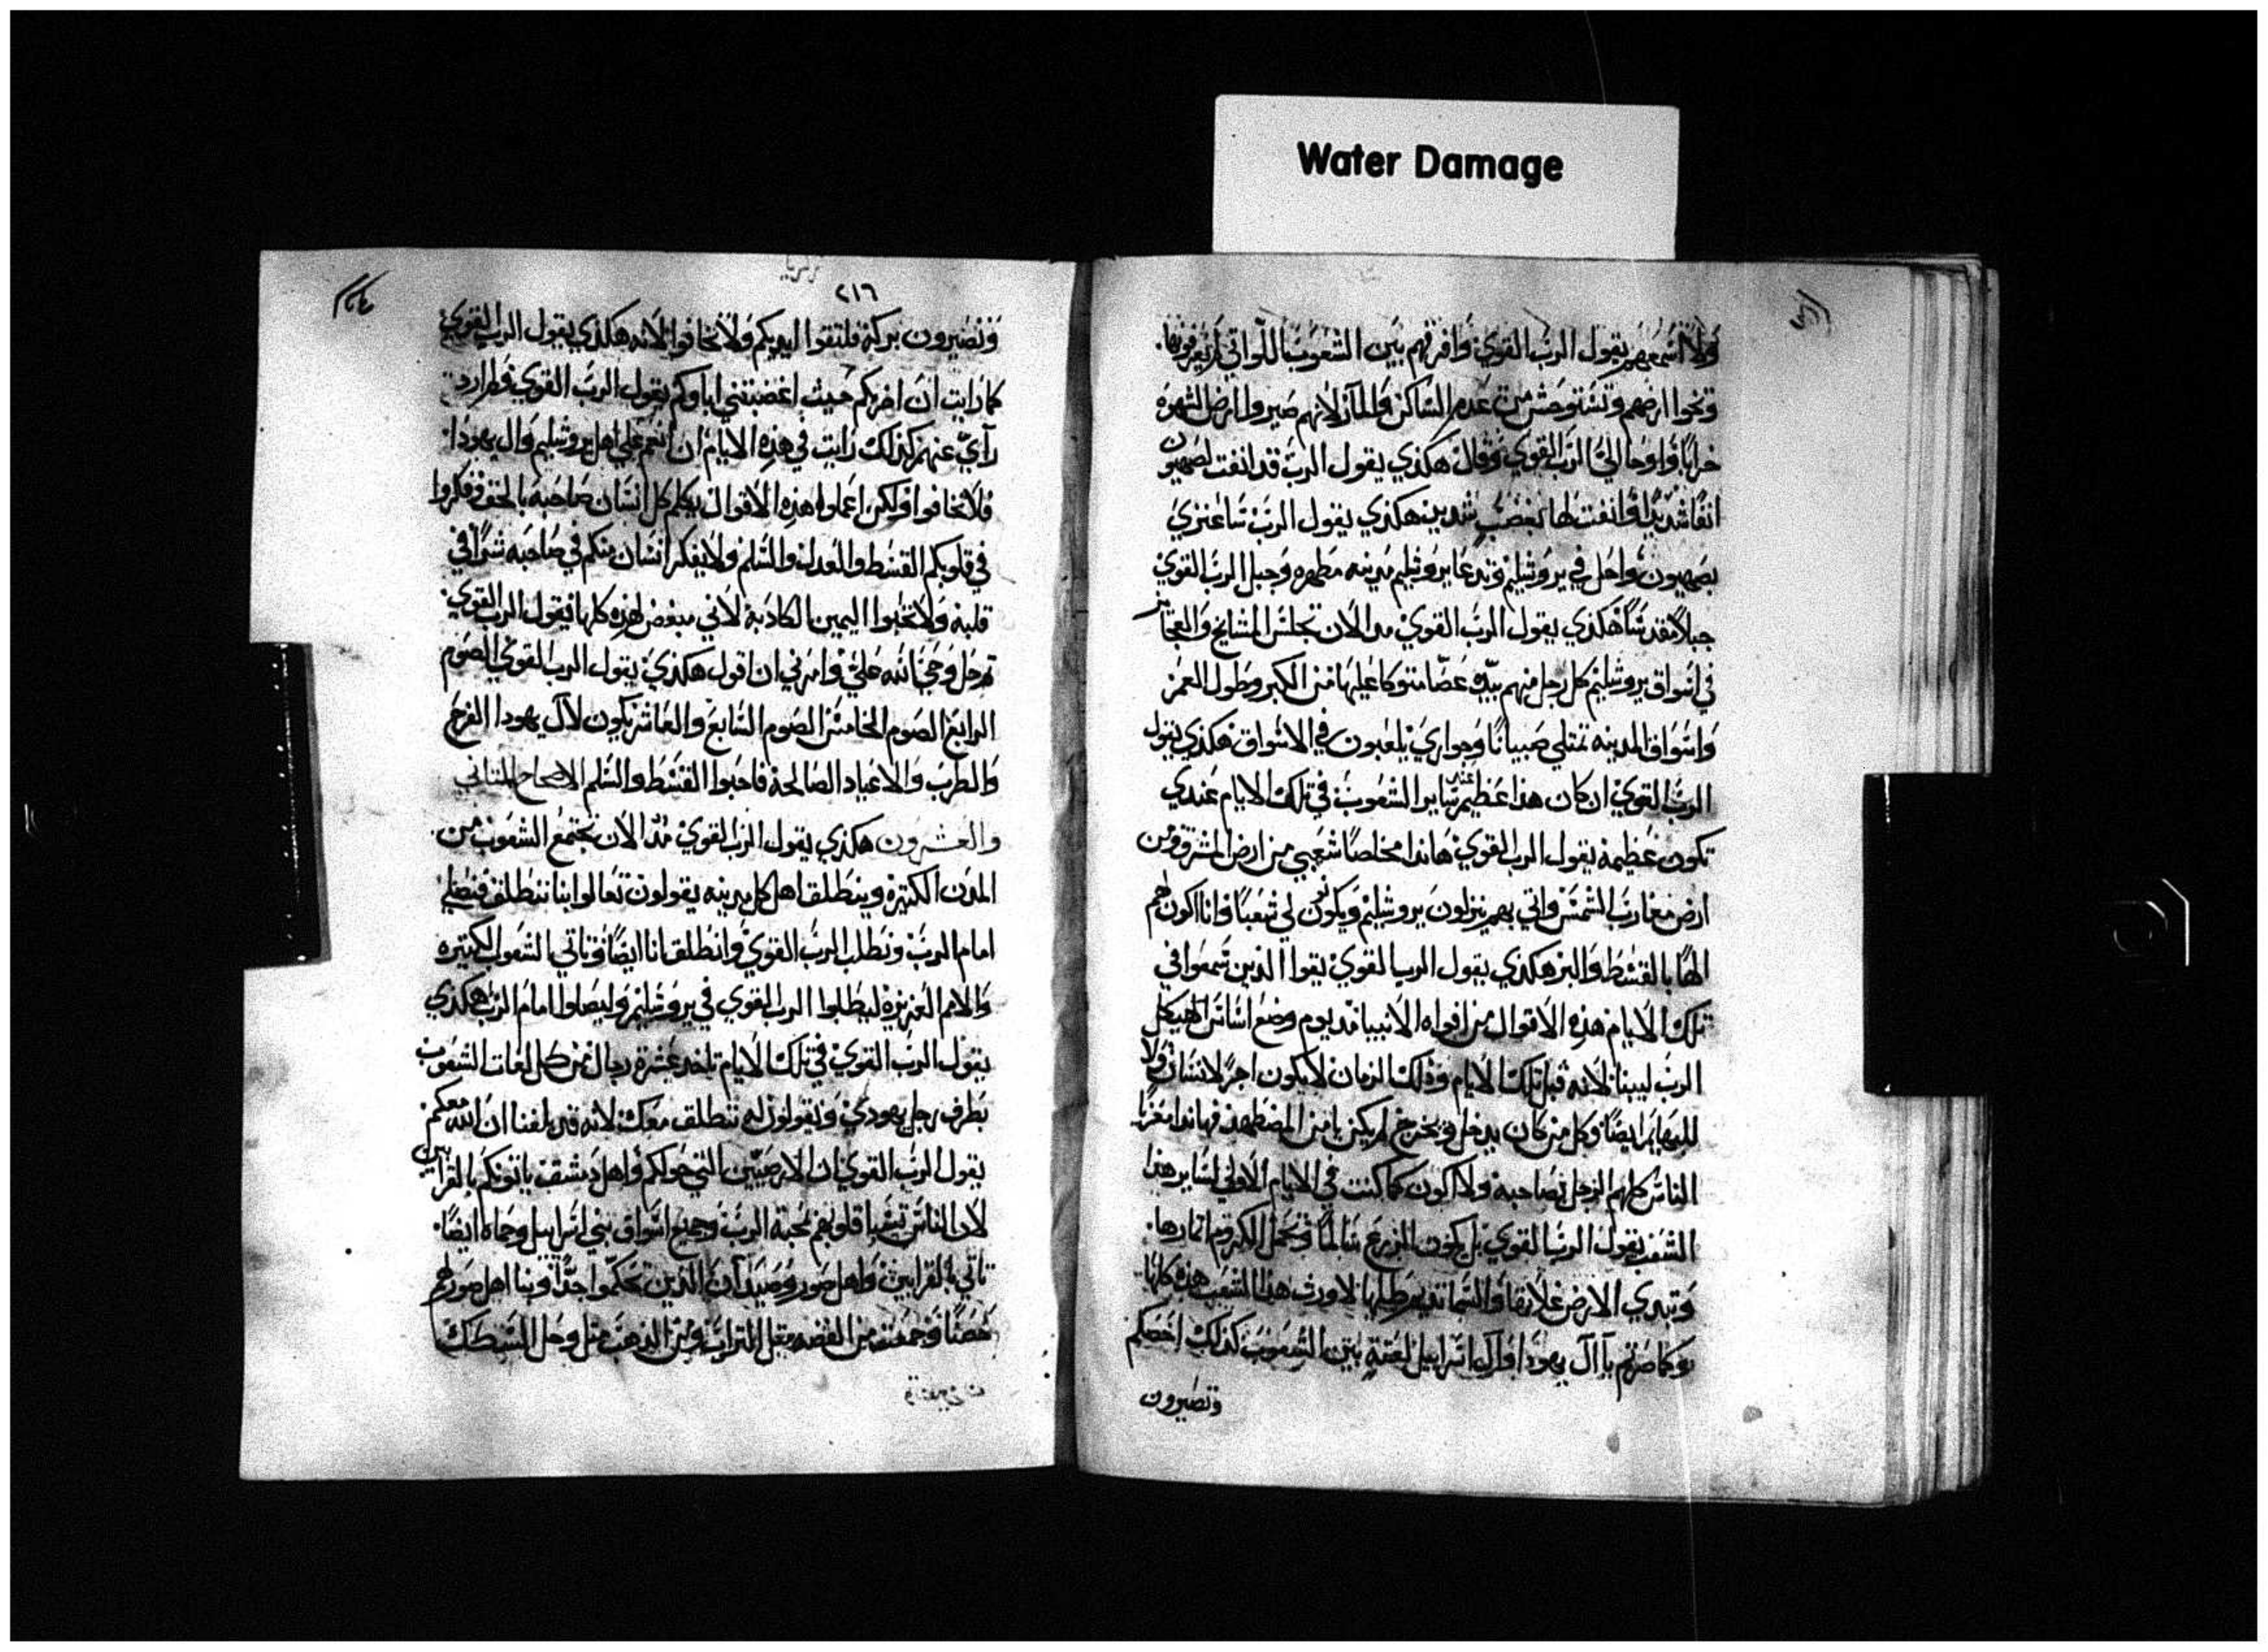 Water Damage
ولا اسمعهم يقول الرب القوي وافرقهم بين الشعوب اللواتي لم يعرفونها.
وتخوا ارضهم وتستوحش من عدم الساكن والمآر لانهم صيروا ارض الشهوه
خرابا واوحا الي الرب القوي وقال هكذي يقول الرب قد انفت لصهيون
انفا شديدا وانفت لها بغضب شديد هكذي يقول الرب ساعتزي
بصهيون واحل في يروشليم وتدعا يروشليم مدينه مطهره وجبل الرب القوي
جبلا مقدسا هكذي يقول الرب القوي من الان تجلس المشايخ والعجايز
في اسواق يروشليم كل رجل منهم بيده عصا متوكا عليها من الكبر وطول العمر
واسواق المدينه تمتلي صبيانا وجواري يلعبون في الاسواق هكذي يقول
الرب القوي ان كان هذا عظيم عند ساير الشعوب في تلك الايام عندي
تكون عظيمة يقول الرب القوي هاندا مخلصا شعبي من ارض المشرق ومن
ارض مغارب الشمس واتي بهم ينزلون يروشليم ويكونون لي شعبا وانا اكون لهم
الها بالقسط والبر هكذي يقول الرب القوي يقوا الذين سمعوا في
تلك الايام هذه الاقوال من افواه الانبيا مذ يوم وضع اساس الهيكل
الرب ليبنا لانه قبل تلك الايام وذلك الزمان لا يكون اجر لانسان ولا
للبهايم ايضا وكل من كان يدخل ويخرج لم يكن يامن المضطهد فهاندا مغزيا
الناس كلهم الرجل بصاحبه ولا اكون كما كنت في الايام الاولي لساير هذا
الشعب يقول الرب القوي بل يكون الزرع سالما وتحمل الكروم اثمارها.
وتبدي الارض غلاتها والسما تديم طلها لاورث هذا الشعب هذه كلها.
وكما صرتم يا آل يهودا وآل اسراييل لعنة بين الشعوب كذلك اخصكم
وتصيرون
زكريا
٢١٦
وتصيرون بركة فلتقوا ايديكم ولا تخافوا لانه هكذي يقول الرب القوي
كما رايت ان اضربكم حيث اغضبتني اباوكم يقول الرب القوي ولم ارد
رآي عنهم كذلك رايت في هذه الايام ان انعم علي اهل يروشليم وال يهودا.
فلا تخافوا ولكن اعملوا هذه الاقوال يكلم كل انسان صاحبه بالحق وفكروا
في قلوبكم القسط والعدل والسلم ولا يفكر انسان منكم في صاحبه شرا في
قلبه ولا تحبوا اليمين الكاذبة لاني مبغض لهذه كلها يقول الرب القوي.
ثم حل وحي الله علي وامرني ان اقول هكذي يقول الرب القوي الصوم
الرابع الصوم الخامس الصوم السابع والعاشر يكون لآل يهودا الفرح
والطرب والاعياد الصالحة فاحبوا القسط والسلم الاصحاح الثاني
والعشرون هكذي يقول الرب القوي مذ الان تجتمع الشعوب من
المدن الكثيره وينطلق اهل كل مدينه يقولون تعالوا بنا ننطلق فنصلي
امام الرب ونطلب الرب القوي وانطلق انا ايضا وتاتي الشعوب الكثيره
والامم العزيزة ليطلبوا الرب القوي في يروشليم وليصلوا امام الرب هكذي
يقول الرب القوي في تلك الايام تاخذ عشرة رجال من كل لغات الشعوب
بطرف رجل يهودي ويقولون له ننطلق معك لانه قد بلغنا ان الله معكم
يقول الرب القوي ان الارضين التي حولكم واهل دمشق ياتونكم بالقرابين
لان الناس قلوبهم محبة الرب وجميع اسواق بني اسراييل وحماه ايضا.
تاتي بالقرابين واهل صور وصيدا ان الذين تحكموا جدا وبنا اهل صور لهم
حصنا وجمعت من الفضه مثل التراب ومن الذهب مثل وحل السكك